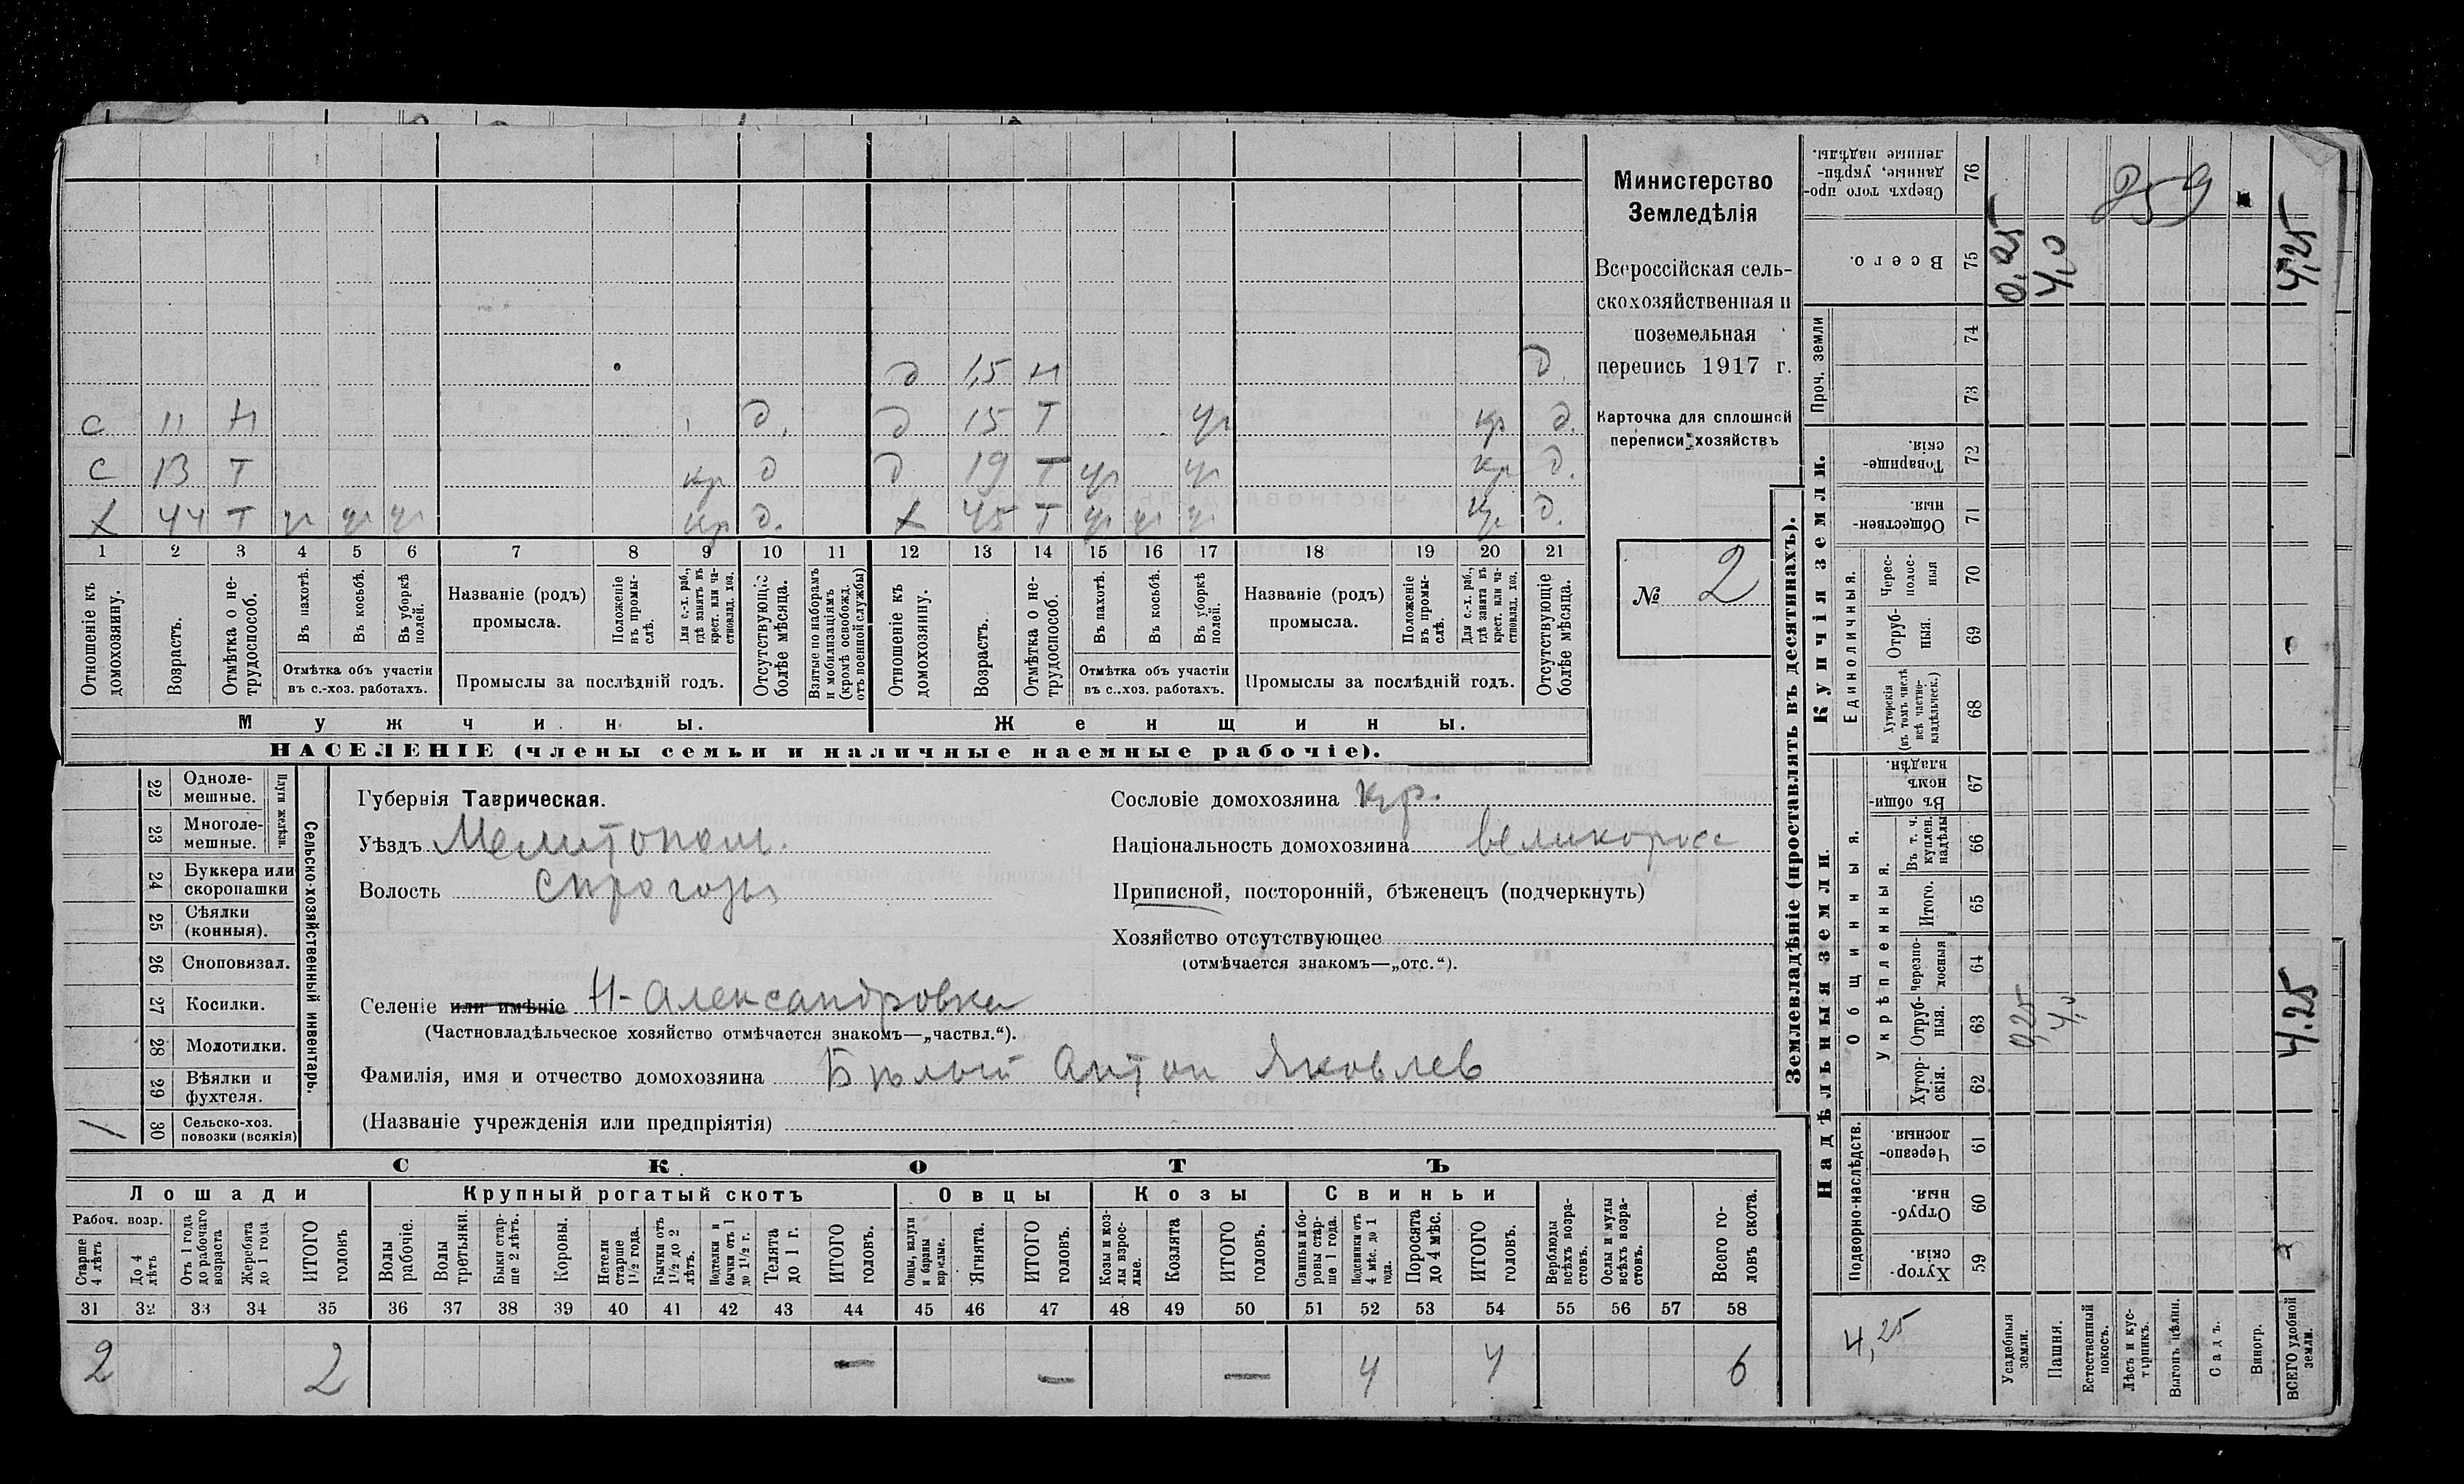 с 11 Н д. д 1,5 Н д.
с 13 Т кр д д 15 Т уг кр д.
х 44 Т уг уг уг кр д. д 19 Т уг уг кр д.
х 45 Т уг уг уг кр д.
1 2 3 4 5 6 7 8 9 10 11 12 13 14 15 16 17 18 19 20 21
Отношеніе къ домохозяину.
Возрастъ.
Отмѣтка о нетрудоспособ.
Въ пахотѣ.
Въ косьбѣ.
Въ уборкѣ полей.
Отмѣтка объ участіи
въ с.-хоз. работахъ.
Названіе (родъ)
промысла.
Положеніе въ промыслѣ.
Для с.-х. раб., гдѣ занятъ въ крест. или частновлад. хоз.
Промыслы за послѣдній годъ.
Отсутствующіе болѣе мѣсяца.
Взятые по наборамъ и мобилизаціямъ (кромѣ освобожд. отъ военной службы)
Отношеніе къ домохозяину.
Возрастъ.
Отмѣтка о нетрудоспособ.
Въ пахотѣ.
Въ косьбѣ.
Въ уборкѣ полей.
Отмѣтка объ участіи
въ с.-хоз. работахъ.
Названіе (родъ)
промысла.
Положеніе въ промыслѣ.
Для с.-х. раб., гдѣ занята въ крест. или частновлад. хоз.
Промыслы за послѣдній годъ.
Отсутствующіе болѣе мѣсяца.
Мужчины.
Женщины.
НАСЕЛЕНІЕ (члены семьи и наличные наемные рабочіе).
Министерство
Земледѣлія
Всероссійская сель-
скохозяйственная и
поземельная
перепись 1917 г.
Карточка для сплошной
переписи хозяйствъ
№ 2
22 Одноле-
мешные.
23 Многоле-
мешные.
Плуги желѣзн.
24 Буккера или
скоропашки
25 Сѣялки
(конныя).
26 Сноповязал.
27 Косилки.
28 Молотилки.
29 Вѣялки и
фухтеля.
1 30 Сельско-хоз.
повозки (всякія)
Сельско-хозяйственный инвентарь.
Губернія Таврическая.
Уѣздъ Мелитопол.
Волость Сирогозы
Селеніе или имѣніе Н-Александровка
(Частновладѣльческое хозяйство отмѣчается знакомъ—„частвл.“).
Фамилія, имя и отчество домохозяина Бѣлый Антон Яковлев
(Названіе учрежденія или предпріятія)
Сословіе домохозяина кр.
Національность домохозяина великоросс
Приписной, посторонній, бѣженецъ (подчеркнуть)
Хозяйство отсутствующее
(отмѣчается знакомъ—„отс.“).
СКОТЪ
Лошади
Крупный рогатый скотъ
Овцы
Козы
Свиньи
Рабоч. возр.
Старше 4 лѣтъ
До 4 лѣтъ
Отъ 1 года до рабочаго возраста
Жеребята до 1 года
ИТОГО головъ
Волы рабочіе.
Волы третьяки.
Быки старше 2 лѣтъ.
Коровы.
Нетели старше 1 1/2 года.
Бычки отъ 1 1/2 до 2 лѣтъ.
Подтелки и бычки отъ 1 до 1 1/2 г.
Телята до 1 г.
ИТОГО головъ.
Овцы, валухи и бараны взрослые.
Ягнята.
ИТОГО головъ.
Козы и козлы взрослые.
Козлята
ИТОГО головъ.
Свиньи и боровы старше 1 года.
Подсвинки отъ 4 мѣс. до 1 года.
Поросята до 4 мѣс.
ИТОГО головъ.
Верблюды всѣхъ возрастовъ.
Ослы и мулы всѣхъ возрастовъ.
Всего головъ скота.
31 32 33 34 35 36 37 38 39 40 41 42 43 44 45 46 47 48 49 50 51 52 53 54 55 56 57 58
2 2 — — — 4 4 6
Землевладѣніе (проставлять въ десятинахъ).
Надѣльныя земли.
Купчія земли.
Проч. земли
Подворно-наслѣдств.
Общинныя.
Укрѣпленныя.
Единоличныя.
59 Хуторскія.
60 Отрубныя.
61 Черезполосныя.
62 Хуторскія.
63 Отрубныя. 0,25 4,0
64 черезполосныя
65 Итого.
66 Въ т. ч. куплен. надѣлы
67 Въ общинномъ владѣн.
68 Хуторскія (въ томъ числѣ всѣ частновладѣльческ.)
69 Отрубныя.
70 Чересполосныя
71 Общественныя.
72 Товарищескія.
73
74
75 Всего. 0,25 4,0 4,25
76 Сверхъ того проданные, укрѣпленные надѣлы.
859
4.25
4,25
Усадебныя земли.
Пашня.
Естественный покосъ.
Лѣсъ и кустарникъ.
Выгонъ цѣлин.
Садъ.
Виногр.
ВСЕГО удобной земли.